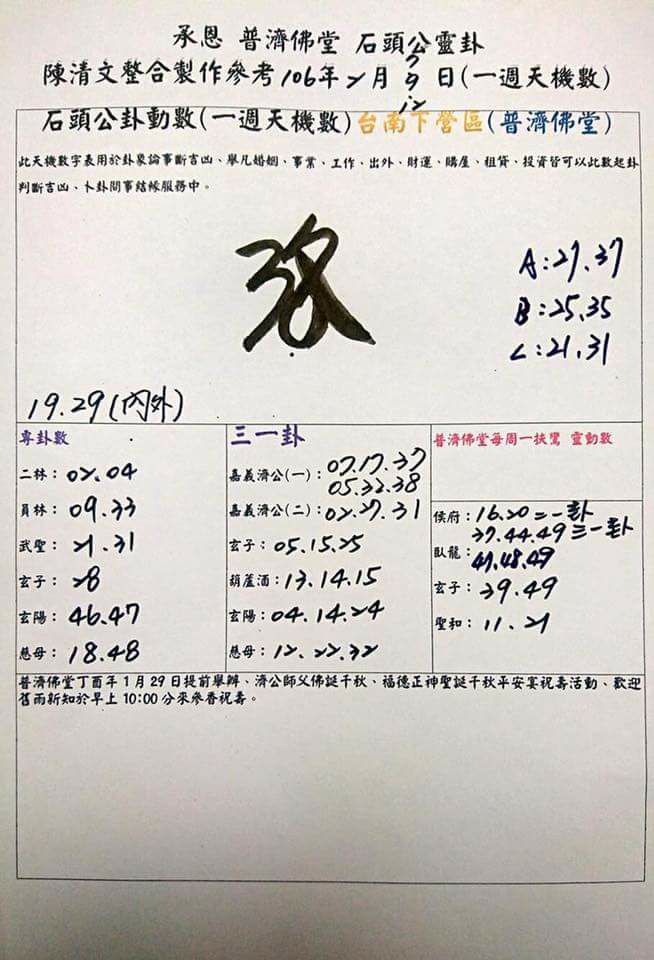 承恩 普濟佛堂 石頭公靈卦
7
陳清文整合製作參考106年2月9日(一週天機數)
12
石頭公卦動數(一週天機數)台南下營區(普濟佛堂)
此天機數字表用於卦象論事斷吉凶、舉凡婚姻、事業、工作、出外、財運、購屋、租賃、投資皆可以此數起卦
判斷吉凶、卜卦問事結緣服務中。
A:27.37
B:25.35
C:21.31
19.29(內外)
專卦數
二林:02.04
員林:09.33
武聖:21.31
玄子:28
玄陽:46.47
慈母:18.48
三一卦
嘉義濟公(一):07.17.37
05.32.38
嘉義濟公(二):02.27.31
玄子:05.15.25
葫蘆酒:13.14.15
玄陽:04.14.24
慈母:12.22.32
普濟佛堂每周一扶鸞 靈動數
侯府:16.20二一卦
37.44.49三一卦
臥龍:47.48.49
玄子:39.49
聖和:11.21
普濟佛堂丁酉年1月29日提前舉辦、濟公師父佛誕千秋、福德正神聖誕千秋平安宴祝壽活動、歡迎
舊雨新知於早上10:00分來參香祝壽。